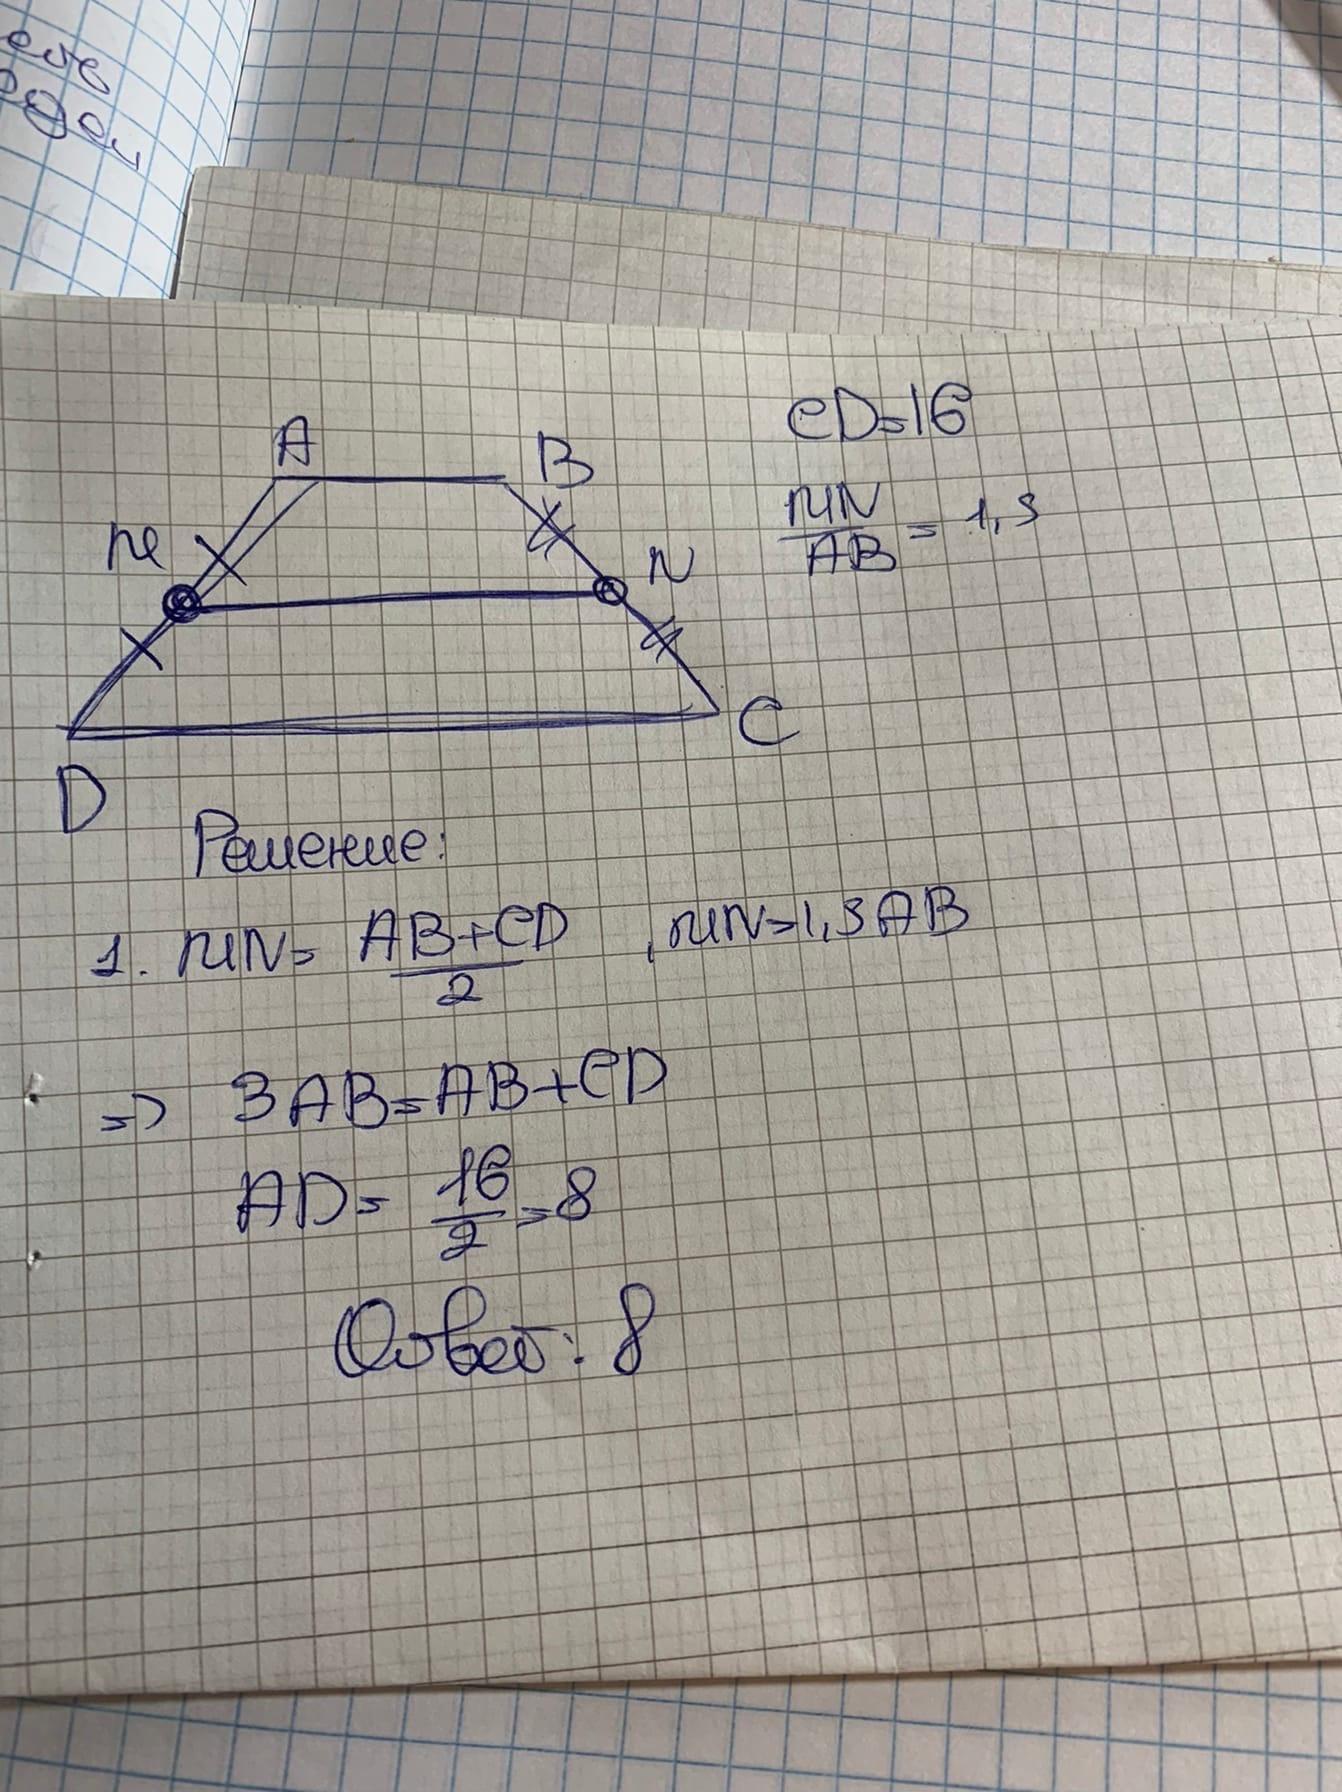 A
B
CD=16
M
N
MN/AB = 1,5
C
D
Решение:
1. MN= AB+CD/2 , MN=1,5AB
=> 3AB=AB+CD
AD= 16/2 =8
Ответ: 8